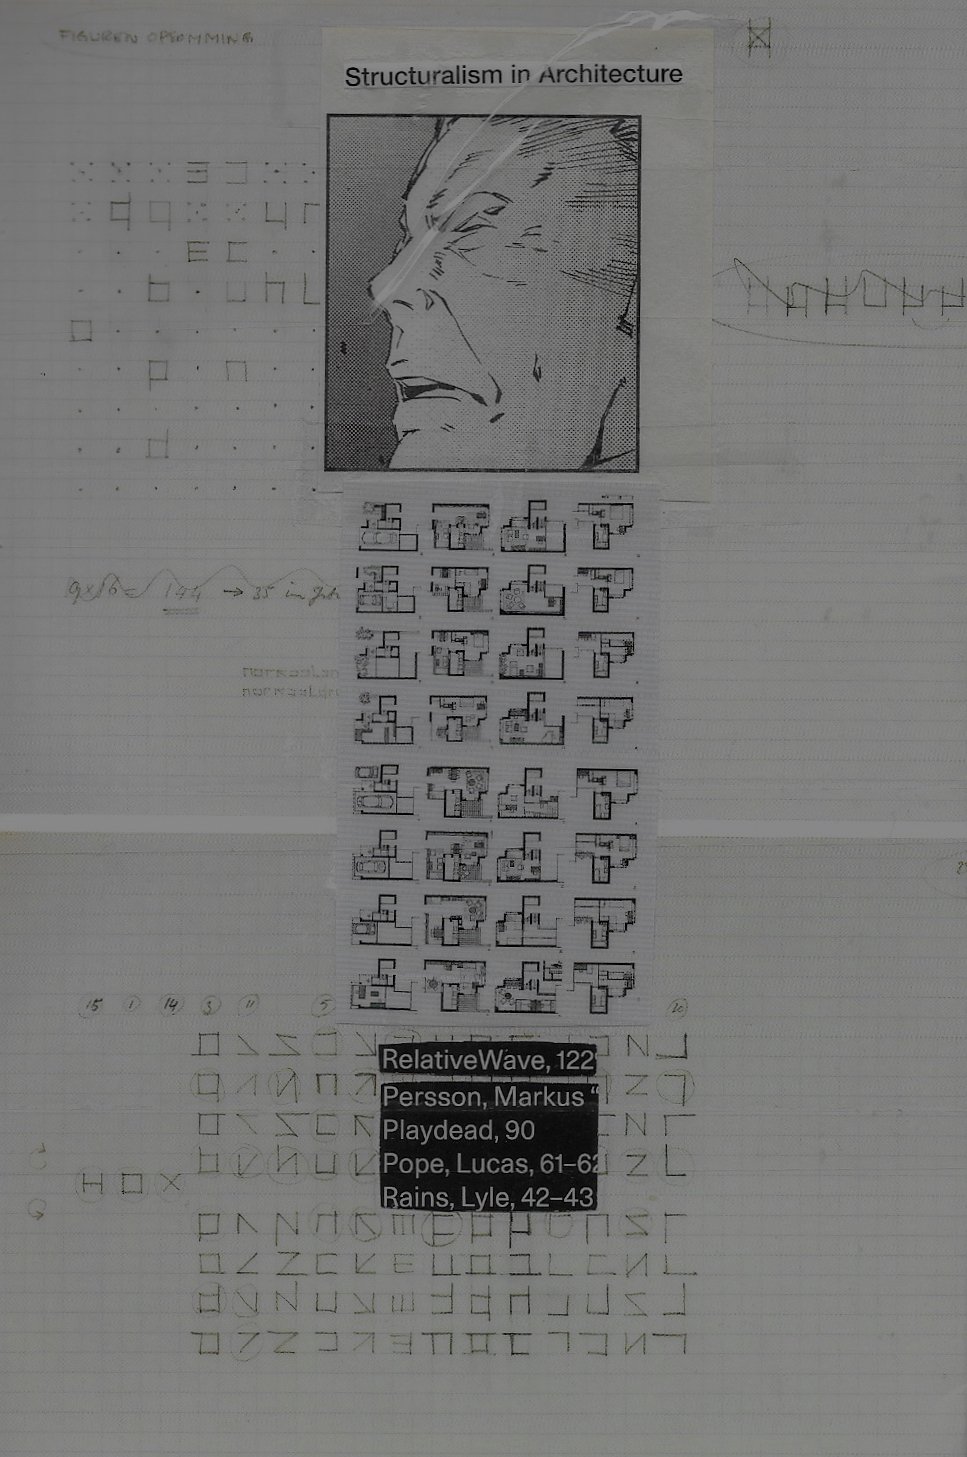 FIGUREN OPSOMMING
Structuralism in Architecture
144 → 35 in
15 1 14 3 11 5 20
RelativeWave, 122
Persson, Markus “
Playdead, 90
Pope, Lucas, 61–62
Rains, Lyle, 42–43
H O X